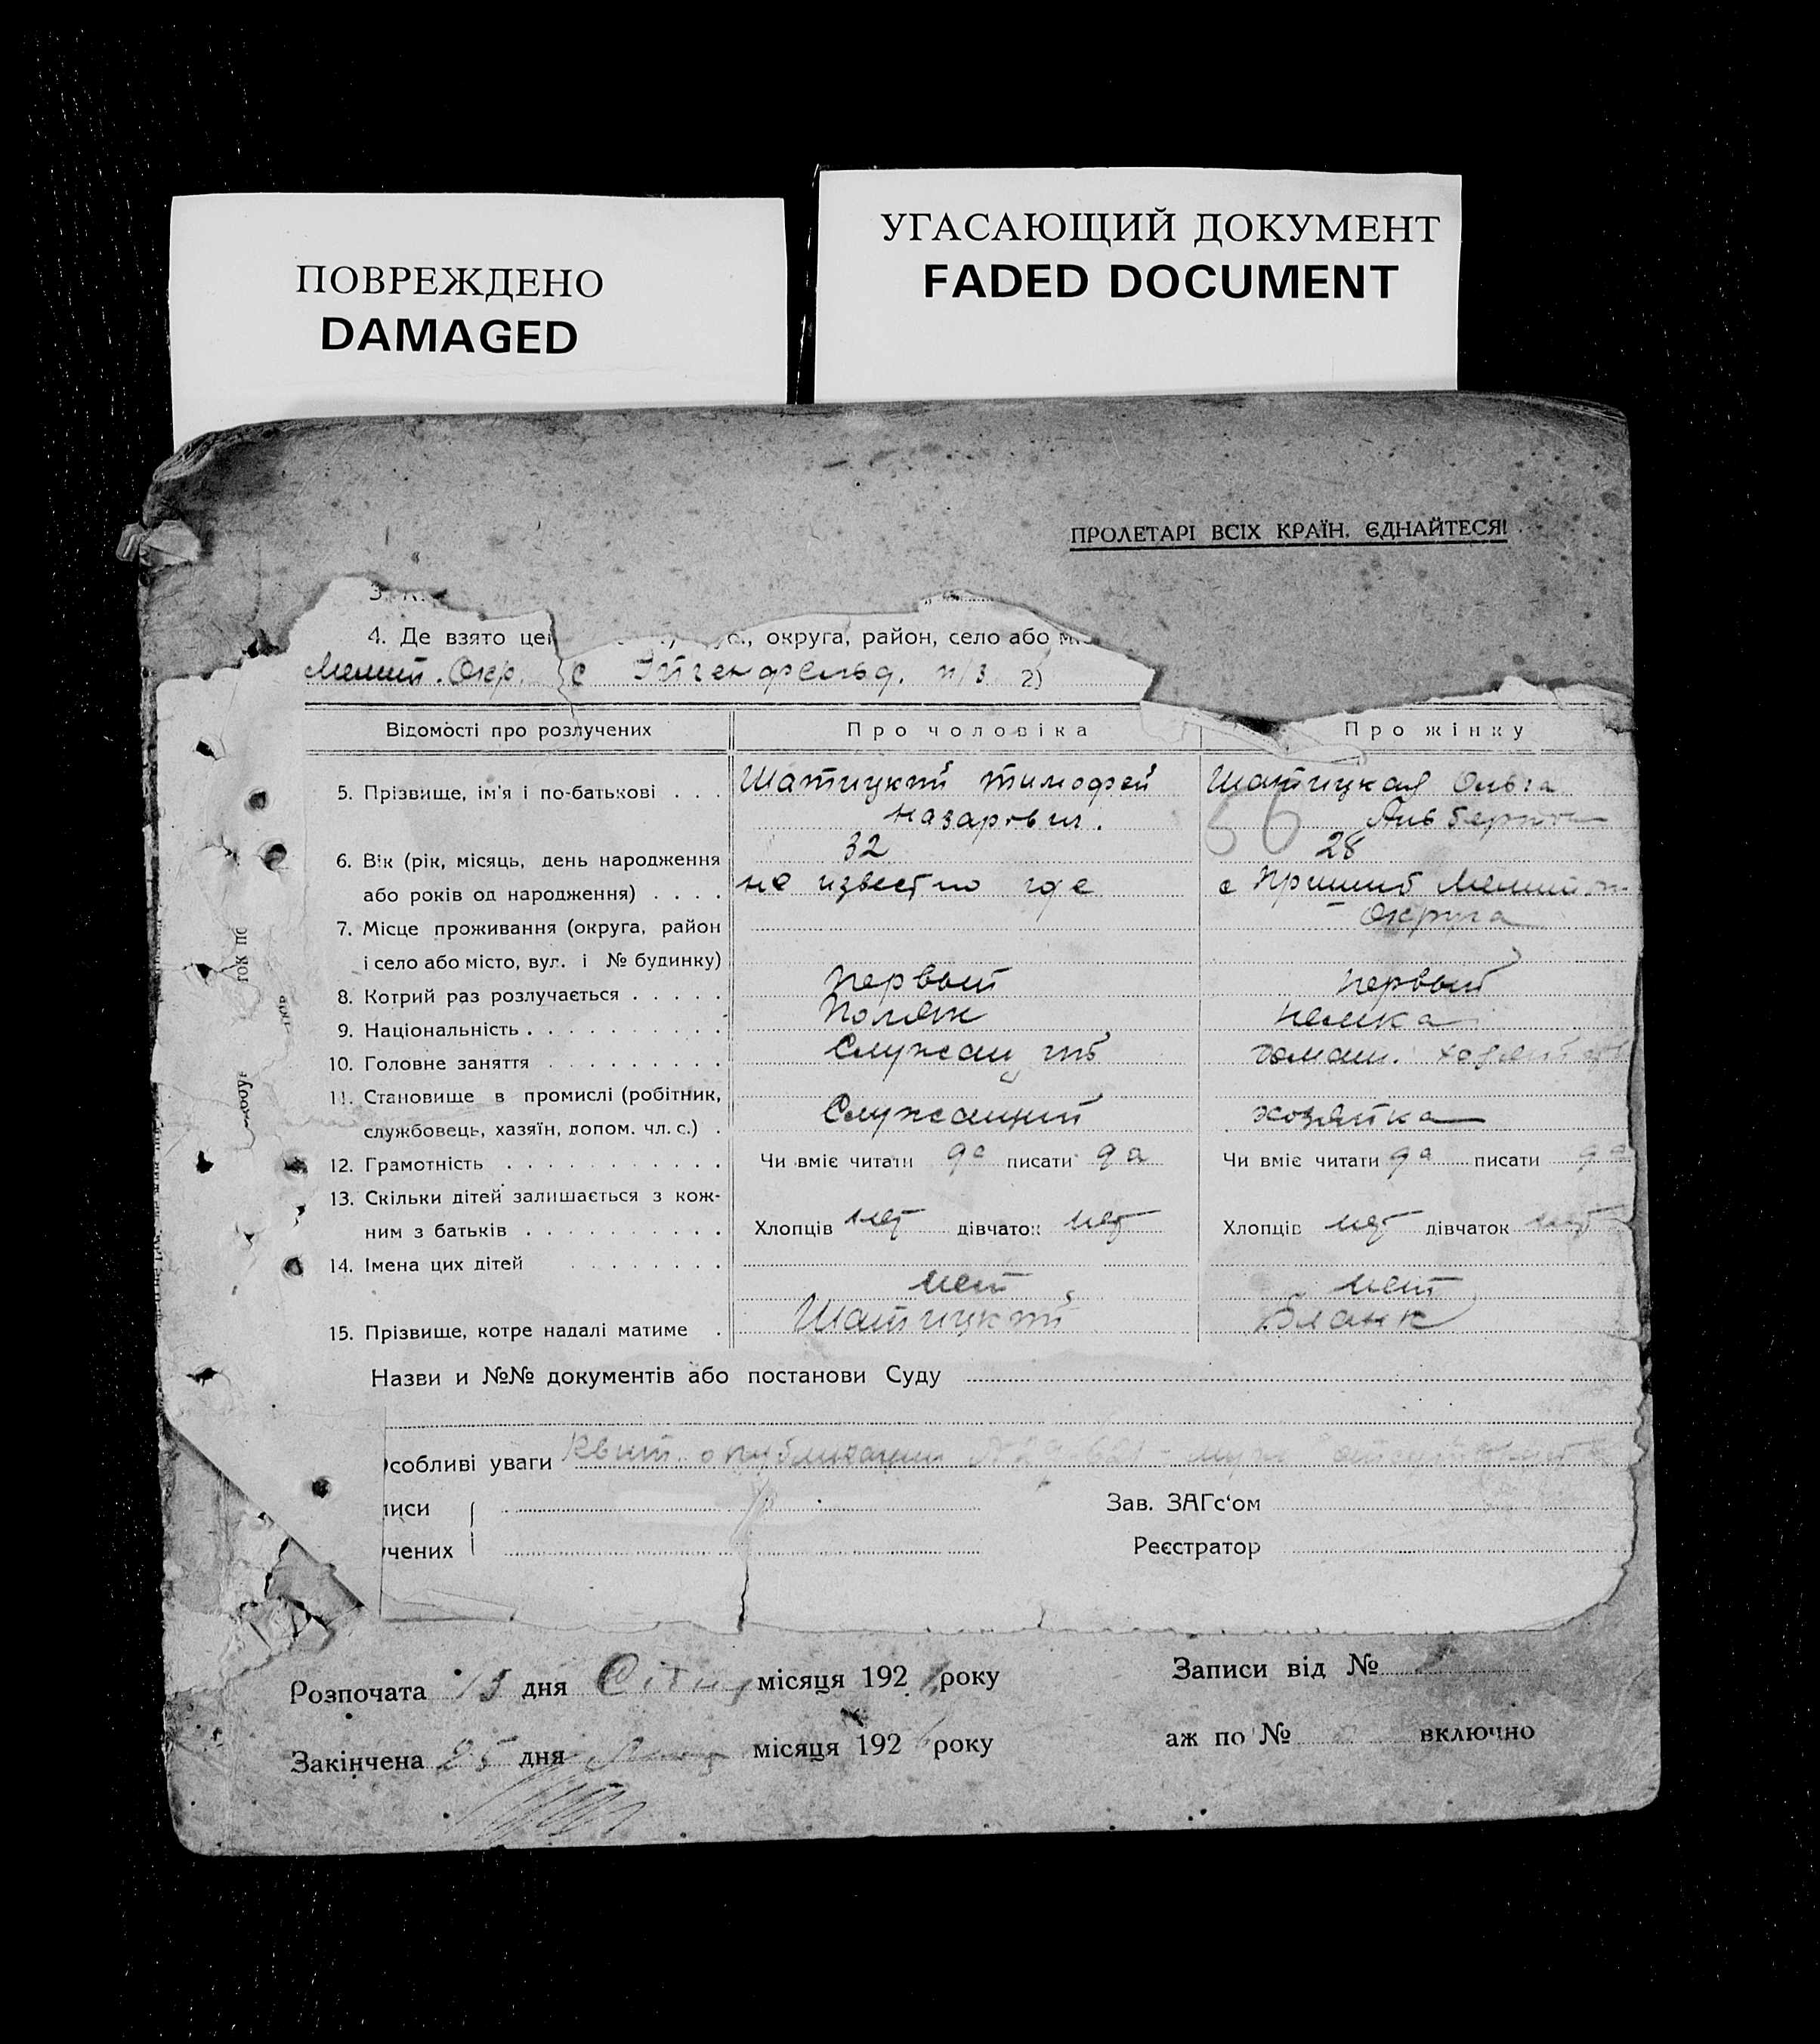 ПОВРЕЖДЕНО
DAMAGED
УГАСАЮЩИЙ ДОКУМЕНТ
FADED DOCUMENT
ПРОЛЕТАРІ ВСІХ КРАЇН, ЄДНАЙТЕСЯ!
4. Де взято округа, район, село або
Мелит. Окр. с Эйгенфельд. п/з 2)
Відомості про розлучених Про чоловіка Про жінку
5. Прізвище, ім'я і по-батькові . . . Шатицкий Тимофей Шатицкая Ольга
Назарович.
6. Вік (рік, місяць, день народження 32 28
або років од народження) . . . . не известно где с Пришиб
7. Місце проживання (округа, район Округа
і село або місто, вул. і № будинку)
8. Котрий раз розлучається . . . . . первый первый
9. Національність . . . . . . . . . . Поляк немка
10. Головне заняття . . . . . . . . . Служащий домаш.
11. Становище в промислі (робітник,
службовець, хазяїн, допом. чл. с.) . Служащий хозяйка
12. Грамотність . . . . . . . . . . . Чи вміє читати да писати да Чи вміє читати да писати да
13. Скільки дітей залишається з кож-
ним з батьків . . . . . . . . . . Хлопців нет дівчаток нет Хлопців нет дівчаток нет
14. Імена цих дітей . . . . . . . .
нет нет
15. Прізвище, котре надалі матиме . Шатицкий Бланк
Назви и №№ документів або постанови Суду
собливі уваги Квит. о публикации
иси Зав. ЗАГс'ом
чених Реєстратор
Розпочата 13 дня місяця 192 року Записи від №
Закінчена 25 дня місяця 192 року аж по № включно